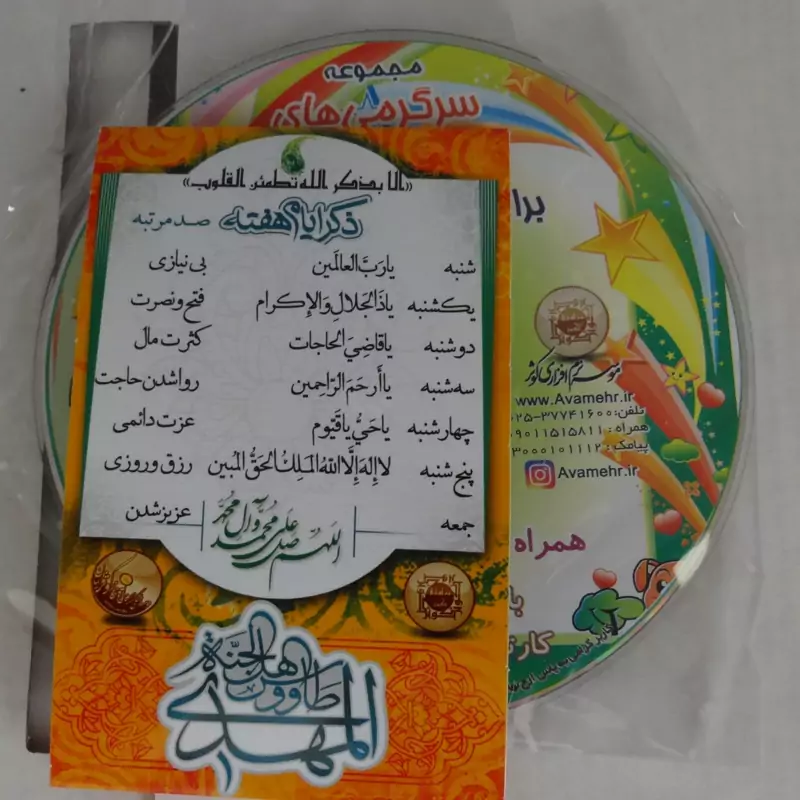 مجموعه
سرگرمی های
«الا بذکر الله تطمئن القلوب»
ذکر ایام هفته صد مرتبه
شنبه یا رَبَّ العالَمین بی نیازی
یکشنبه یا ذَالجَلالِ وَالإکرام فتح و نصرت
دوشنبه یا قاضِیَ الحاجات کثرت مال
سه شنبه یا أرحَمَ الرّاحِمین روا شدن حاجت
چهارشنبه یا حَیُّ یا قَیّوم عزت دائمی
پنج شنبه لا إله إلّا اللهُ المَلِکُ الحَقُّ المُبین رزق و روزی
جمعه اللهم صل علی محمد و آل محمد عزیز شدن
المهدی طاووس اهل الجنة
برا
موسسه نرم افزاری کوثر
www.Avamehr.ir
تلفن: ۰۲۵-۳۷۷۴۱۶۰۰
همراه: ۰۹۰۱۱۵۱۵۸۱۱
پیامک: ۳۰۰۰۱۰۱۱۱۲
Avamehr.ir
همراه
با
کارت